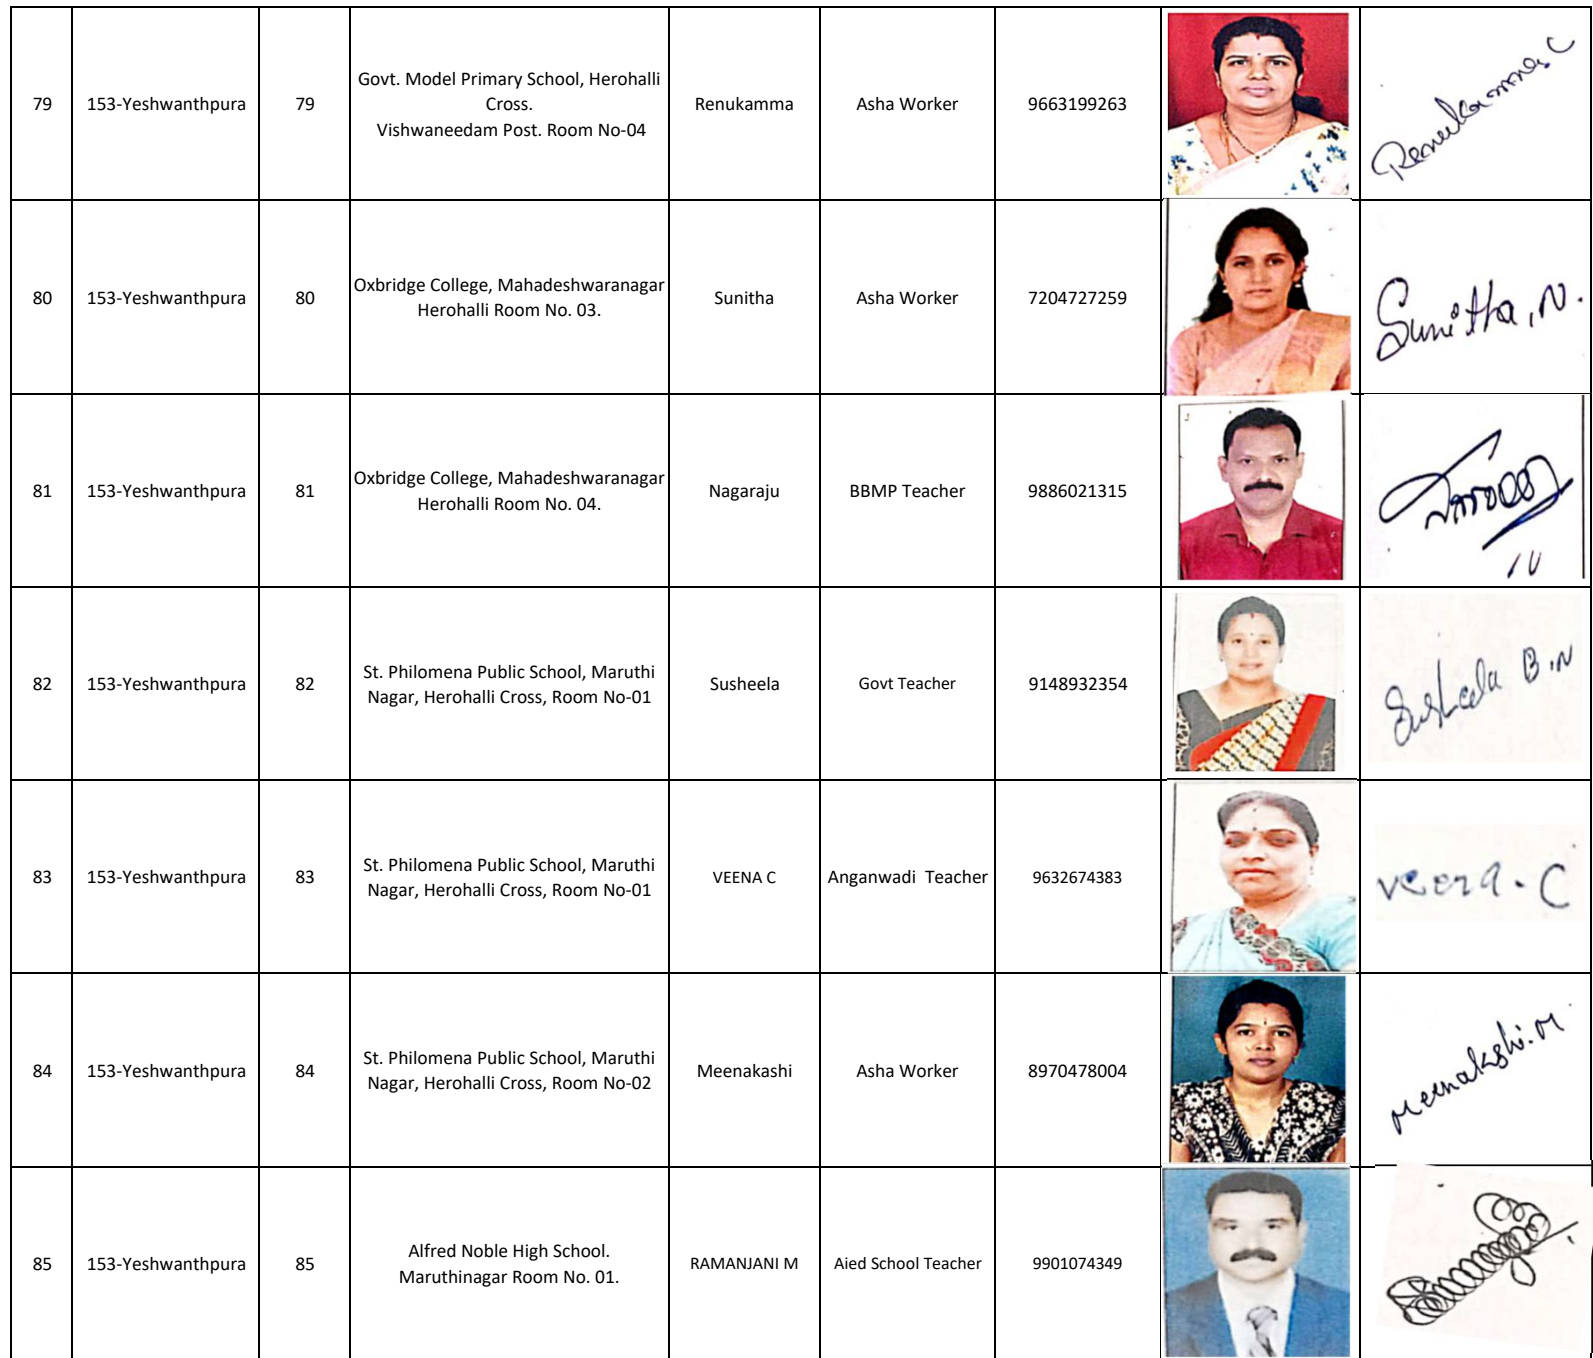 79 153-Yeshwanthpura 79 Govt. Model Primary School, Herohalli
Cross.
Vishwaneedam Post. Room No-04 Renukamma Asha Worker 9663199263 Renukamma C
80 153-Yeshwanthpura 80 Oxbridge College, Mahadeshwaranagar
Herohalli Room No. 03. Sunitha Asha Worker 7204727259 Sunitha.N.
81 153-Yeshwanthpura 81 Oxbridge College, Mahadeshwaranagar
Herohalli Room No. 04. Nagaraju BBMP Teacher 9886021315
82 153-Yeshwanthpura 82 St. Philomena Public School, Maruthi
Nagar, Herohalli Cross, Room No-01 Susheela Govt Teacher 9148932354 Susheela B.N
83 153-Yeshwanthpura 83 St. Philomena Public School, Maruthi
Nagar, Herohalli Cross, Room No-01 VEENA C Anganwadi Teacher 9632674383 veena.C
84 153-Yeshwanthpura 84 St. Philomena Public School, Maruthi
Nagar, Herohalli Cross, Room No-02 Meenakashi Asha Worker 8970478004 Meenakshi.M
85 153-Yeshwanthpura 85 Alfred Noble High School.
Maruthinagar Room No. 01. RAMANJANI M Aied School Teacher 9901074349